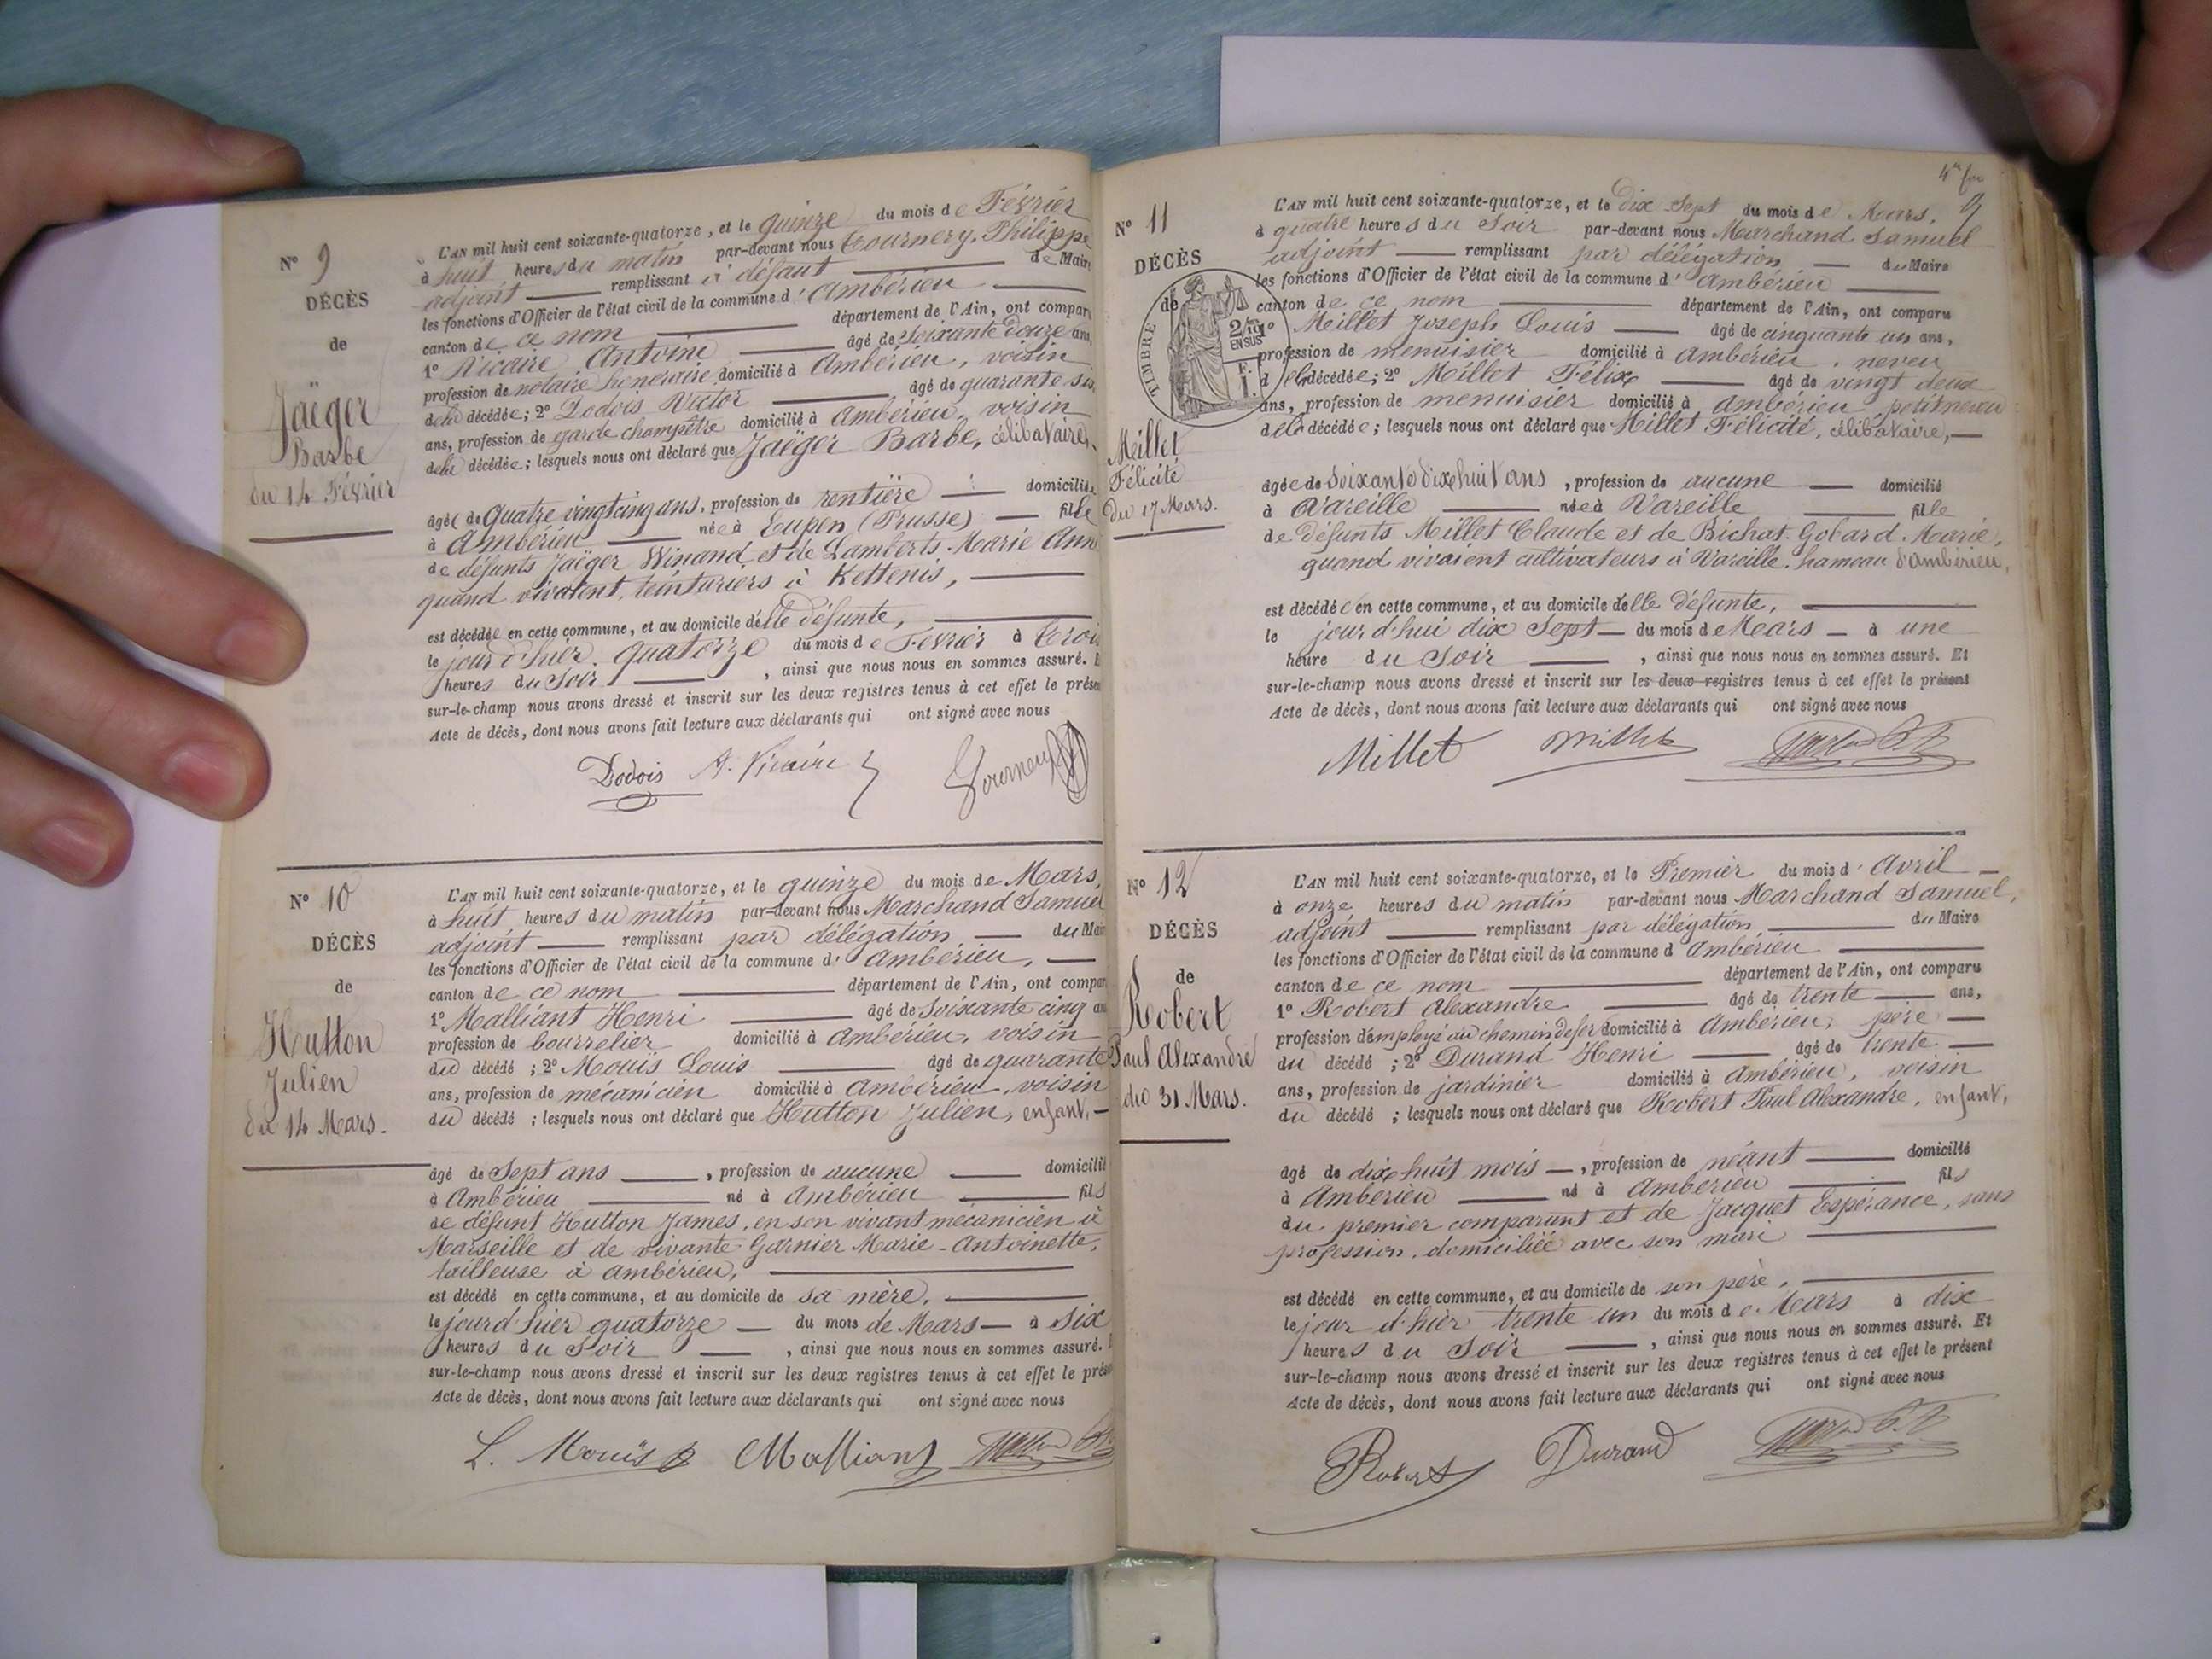 N° 9
DÉCÈS
de
Jaëger
Barbe
du 14 Février
L'AN mil huit cent soixante-quatorze, et le quinze du mois de Février
à huit heures du matin par-devant nous Tournery, Philippe
adjoint remplissant à défaut de Maire
les fonctions d'Officier de l'état civil de la commune d'Ambérieu
canton de ce nom département de l'Ain, ont comparu
1° Vicaire Antoine âgé de Soixante douze ans,
profession de notaire honoraire domicilié à Ambérieu, voisin
de la décédée; 2° Dodois Victor âgé de quarante six
ans, profession de garde champêtre domicilié à Ambérieu, voisin
de la décédée; lesquels nous ont déclaré que Jaëger Barbe, célibataire,
âgée de Quatre vingt cinq ans, profession de rentière domiciliée
à Ambérieu née à Eupen (Prusse) fille
de défunts Jaëger Winand et de Lamberts Marie Anne
quand vivaient, teinturiers à Kettenis,
est décédée en cette commune, et au domicile de lle défunte,
le jour d'hier, quatorze du mois de Février à trois
heures du Soir, ainsi que nous nous en sommes assuré. Et
sur-le-champ nous avons dressé et inscrit sur les deux registres tenus à cet effet le présent
Acte de décès, dont nous avons fait lecture aux déclarants qui ont signé avec nous
Dodois A. Vicaire Tournery
N° 10
DÉCÈS
de
Hutton
Julien
du 14 Mars.
L'AN mil huit cent soixante-quatorze, et le quinze du mois de Mars,
à huit heures du matin par-devant nous Marchand Samuel
adjoint remplissant par délégation du Maire
les fonctions d'Officier de l'état civil de la commune d'Ambérieu,
canton de ce nom département de l'Ain, ont comparu
1° Malliant Henri âgé de Soixante cinq ans
profession de bourrelier domicilié à Ambérieu, voisin
du décédé; 2° Mouïs Louis âgé de quarante
ans, profession de mécanicien domicilié à Ambérieu, voisin
du décédé; lesquels nous ont déclaré que Hutton Julien, enfant,
âgé de Sept ans, profession de aucune domicilié
à Ambérieu né à Ambérieu fils
de défunt Hutton James, en son vivant mécanicien à
Marseille et de vivante Garnier Marie-Antoinette,
tailleuse à Ambérieu,
est décédé en cette commune, et au domicile de sa mère,
le jour d'hier quatorze du mois de Mars à Six
heures du Soir, ainsi que nous nous en sommes assuré.
sur-le-champ nous avons dressé et inscrit sur les deux registres tenus à cet effet le présent
Acte de décès, dont nous avons fait lecture aux déclarants qui ont signé avec nous
L. Mouïs Malliant
4me fle
9
N° 11
DÉCÈS
de
TIMBRE
2/10
EN SUS
F.
1.
Millet
Félicité
du 17 Mars.
L'AN mil huit cent soixante-quatorze, et le dix Sept du mois de Mars,
à quatre heures du Soir par-devant nous Marchand Samuel
adjoint remplissant par délégation du Maire
les fonctions d'Officier de l'état civil de la commune d'Ambérieu
canton de ce nom département de l'Ain, ont comparu
1° Millet Joseph Louis âgé de cinquante un ans,
profession de menuisier domicilié à Ambérieu, neveu
de la décédée; 2° Millet Félix âgé de vingt deux
ans, profession de menuisier domicilié à Ambérieu petit neveu
de la décédée; lesquels nous ont déclaré que Millet Félicité, célibataire,
âgée de Soixante dix huit ans, profession de aucune domicilié
à Vareille née à Vareille fille
de défunts Millet Claude et de Bichat-Gobard Marie,
quand vivaient cultivateurs à Vareille, hameau d'Ambérieu,
est décédée en cette commune, et au domicile de lle défunte,
le jour d'hui dix Sept du mois de Mars à une
heure du Soir, ainsi que nous nous en sommes assuré. Et
sur-le-champ nous avons dressé et inscrit sur les deux registres tenus à cet effet le présent
Acte de décès, dont nous avons fait lecture aux déclarants qui ont signé avec nous
Millet Millet
N° 12
DÉCÈS
de
Robert
Paul Alexandre
du 31 Mars.
L'AN mil huit cent soixante-quatorze, et le Premier du mois d'Avril
à onze heures du matin par-devant nous Marchand Samuel,
adjoint remplissant par délégation, du Maire
les fonctions d'Officier de l'état civil de la commune d'Ambérieu
canton de ce nom département de l'Ain, ont comparu
1° Robert Alexandre âgé de trente ans,
profession d'employé au chemin de fer domicilié à Ambérieu, père
du décédé; 2° Durand Henri âgé de trente
ans, profession de jardinier domicilié à Ambérieu, voisin
du décédé; lesquels nous ont déclaré que Robert Paul Alexandre, enfant,
âgé de dix huit mois, profession de néant domicilié
à Ambérieu né à Ambérieu fils
du premier comparant et de Jacquet Espérance, sans
profession, domiciliée avec son mari
est décédé en cette commune, et au domicile de son père,
le jour d'hier trente un du mois de Mars à dix
heures du Soir, ainsi que nous nous en sommes assuré. Et
sur-le-champ nous avons dressé et inscrit sur les deux registres tenus à cet effet le présent
Acte de décès, dont nous avons fait lecture aux déclarants qui ont signé avec nous
Robert Durand